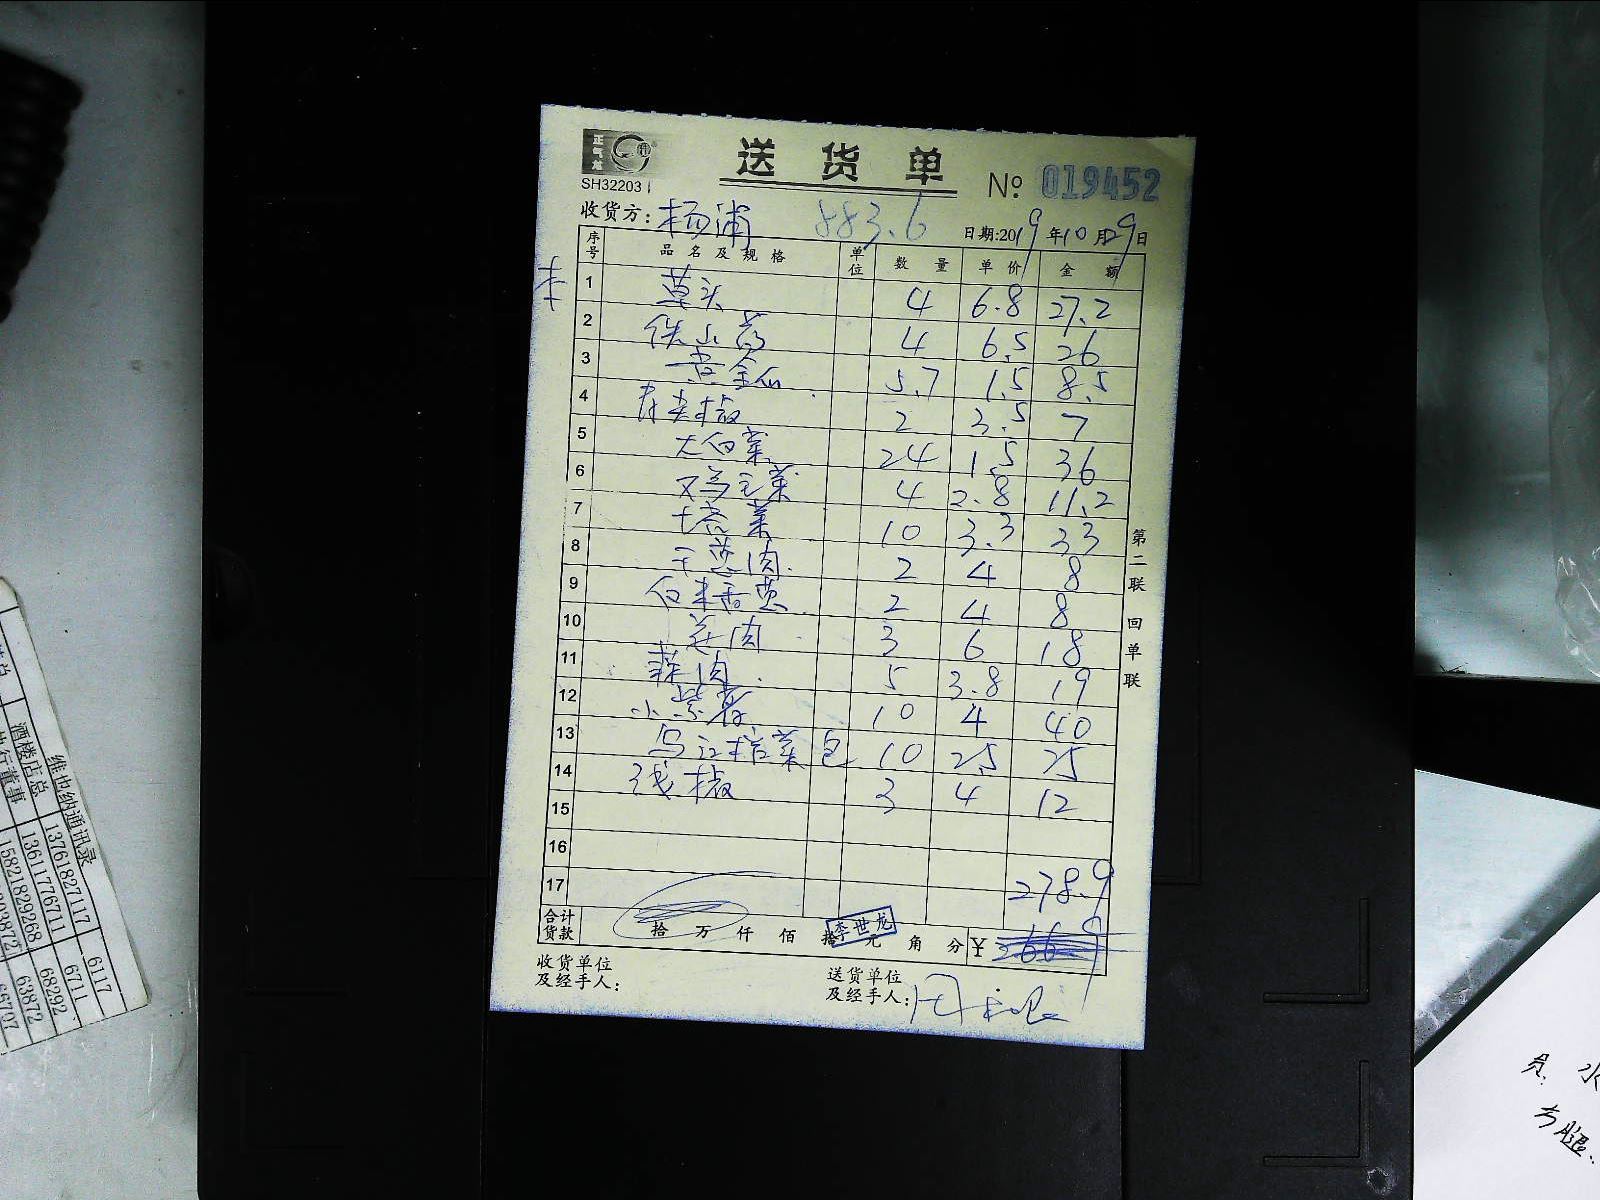 正气龙
送货单
SH322031
№ 019452
收货方: 杨浦 883.6 日期:2019年10月29日
序号 品名及规格 单位 数量 单价 金额
1 草头 4 6.8 27.2
2 铁山药 4 6.5 26
3 黄金瓜 5.7 1.5 8.5
4 青尖椒 2 3.5 7
5 大白菜 24 1.5 36
6 又鸟毛菜 4 2.8 11.2
7 塔菜 10 3.3 33
8 干葱肉 2 4 8
9 白米苋 2 4 8
10 姜肉 3 6 18
11 蒜肉 5 3.8 19
12 小紫薯 10 4 40
13 乌江榨菜 包 10 2.5 25
14 线椒 3 4 12
15
16
17 278.9
合计货款 拾 万 仟 佰 拾 元 角 分 ¥
李世龙
收货单位及经手人:
送货单位及经手人:
第二联 回单联
维也纳通讯录
酒楼店总 13761827117 6117
执行董事 13611776711 6711
15821829268 68292
63872
66707